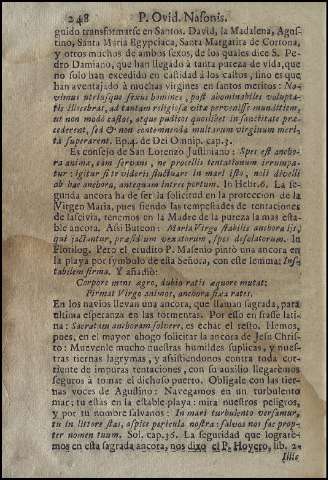 248 P. Ovid. Nasonis.
guido transformarse en Santos. David, la Madalena, Agus-
tino, Santa Maria Egypciaca, Santa Margarita de Cortona,
y otros muchos de ambos sexos, de los quales dice S. Pe-
dro Damiano, que han llegado à tanta pureza de vida, que
no solo han excedido en castidad à los castos, sino es que
han aventajado à muchas virgines en santos meritos: No-
vimus utriusque sexus homines, post abominabiles volupta-
tis illecebras, ad tantam religiosæ vitæ pervenisse munditiem,
ut non modò castos, atque pudicos quoslibet in sanctitate præ-
cederent, sed & non contemnenda multarum virginum meri-
ta superarent. Ep. 4. de Dei Omnip. cap. 3.
Es consejo de San Lorenzo Justiniano: Spes est ancho-
ra animæ, eam servans, ne procellis tentationum irrumpa-
tur: igitur si te videris fluctuare in mari isto, noli divelli
ab hac anchora, antequam intres portum. In Hebr. 6. La se-
gunda ancora ha de ser la solicitud en la proteccion de la
Virgen Maria, pues siendo las tempestades de tentaciones
de lascivia, tenemos en la Madre de la pureza la mas esta-
ble ancora. Assi Buteon: Maria Virgo stabilis anchora iis,
qui jactantur, præsidium vexatorum, spes dissolutorum. In
Florilog. Pero el erudito P. Masenio pintò una ancora en
la playa por symbolo de esta Señora, con este lemma: Ins-
tabilem firma. Y añadiò:
Corpore mens ægro, dubia ratis æquore mutat:
Firmat Virgo animos, anchora fixa rates.
En los navios llevan una ancora, que llaman sagrada, para
ultima esperanza en las tormentas. Por esso en frasse lati-
na: Sacratam anchoram solvere, es echar el resto. Hemos,
pues, en el mayor ahogo solicitar la ancora de Jesu Chris-
to: Muevenle mucho nuestras humildes suplicas, y nues-
tras tiernas lagrymas, y asistiendonos contra toda cor-
riente de impuras tentaciones, con su auxilio llegaremos
seguros à tomar el dichoso puerto. Obligale con las tier-
nas voces de Agustino: Navegamos en un turbulento
mar; tu estas en la estable playa: mira nuestros peligros,
y por tu nombre salvanos: In mari turbulento versamur,
tu in littore stas, aspice pericula nostra: salvos nos fac prop-
ter nomen tuum. Sol. cap. 36. La seguridad que lograre-
mos en esta sagrada ancora, nos dixo el P. Hoyero, lib. 2.
Illis